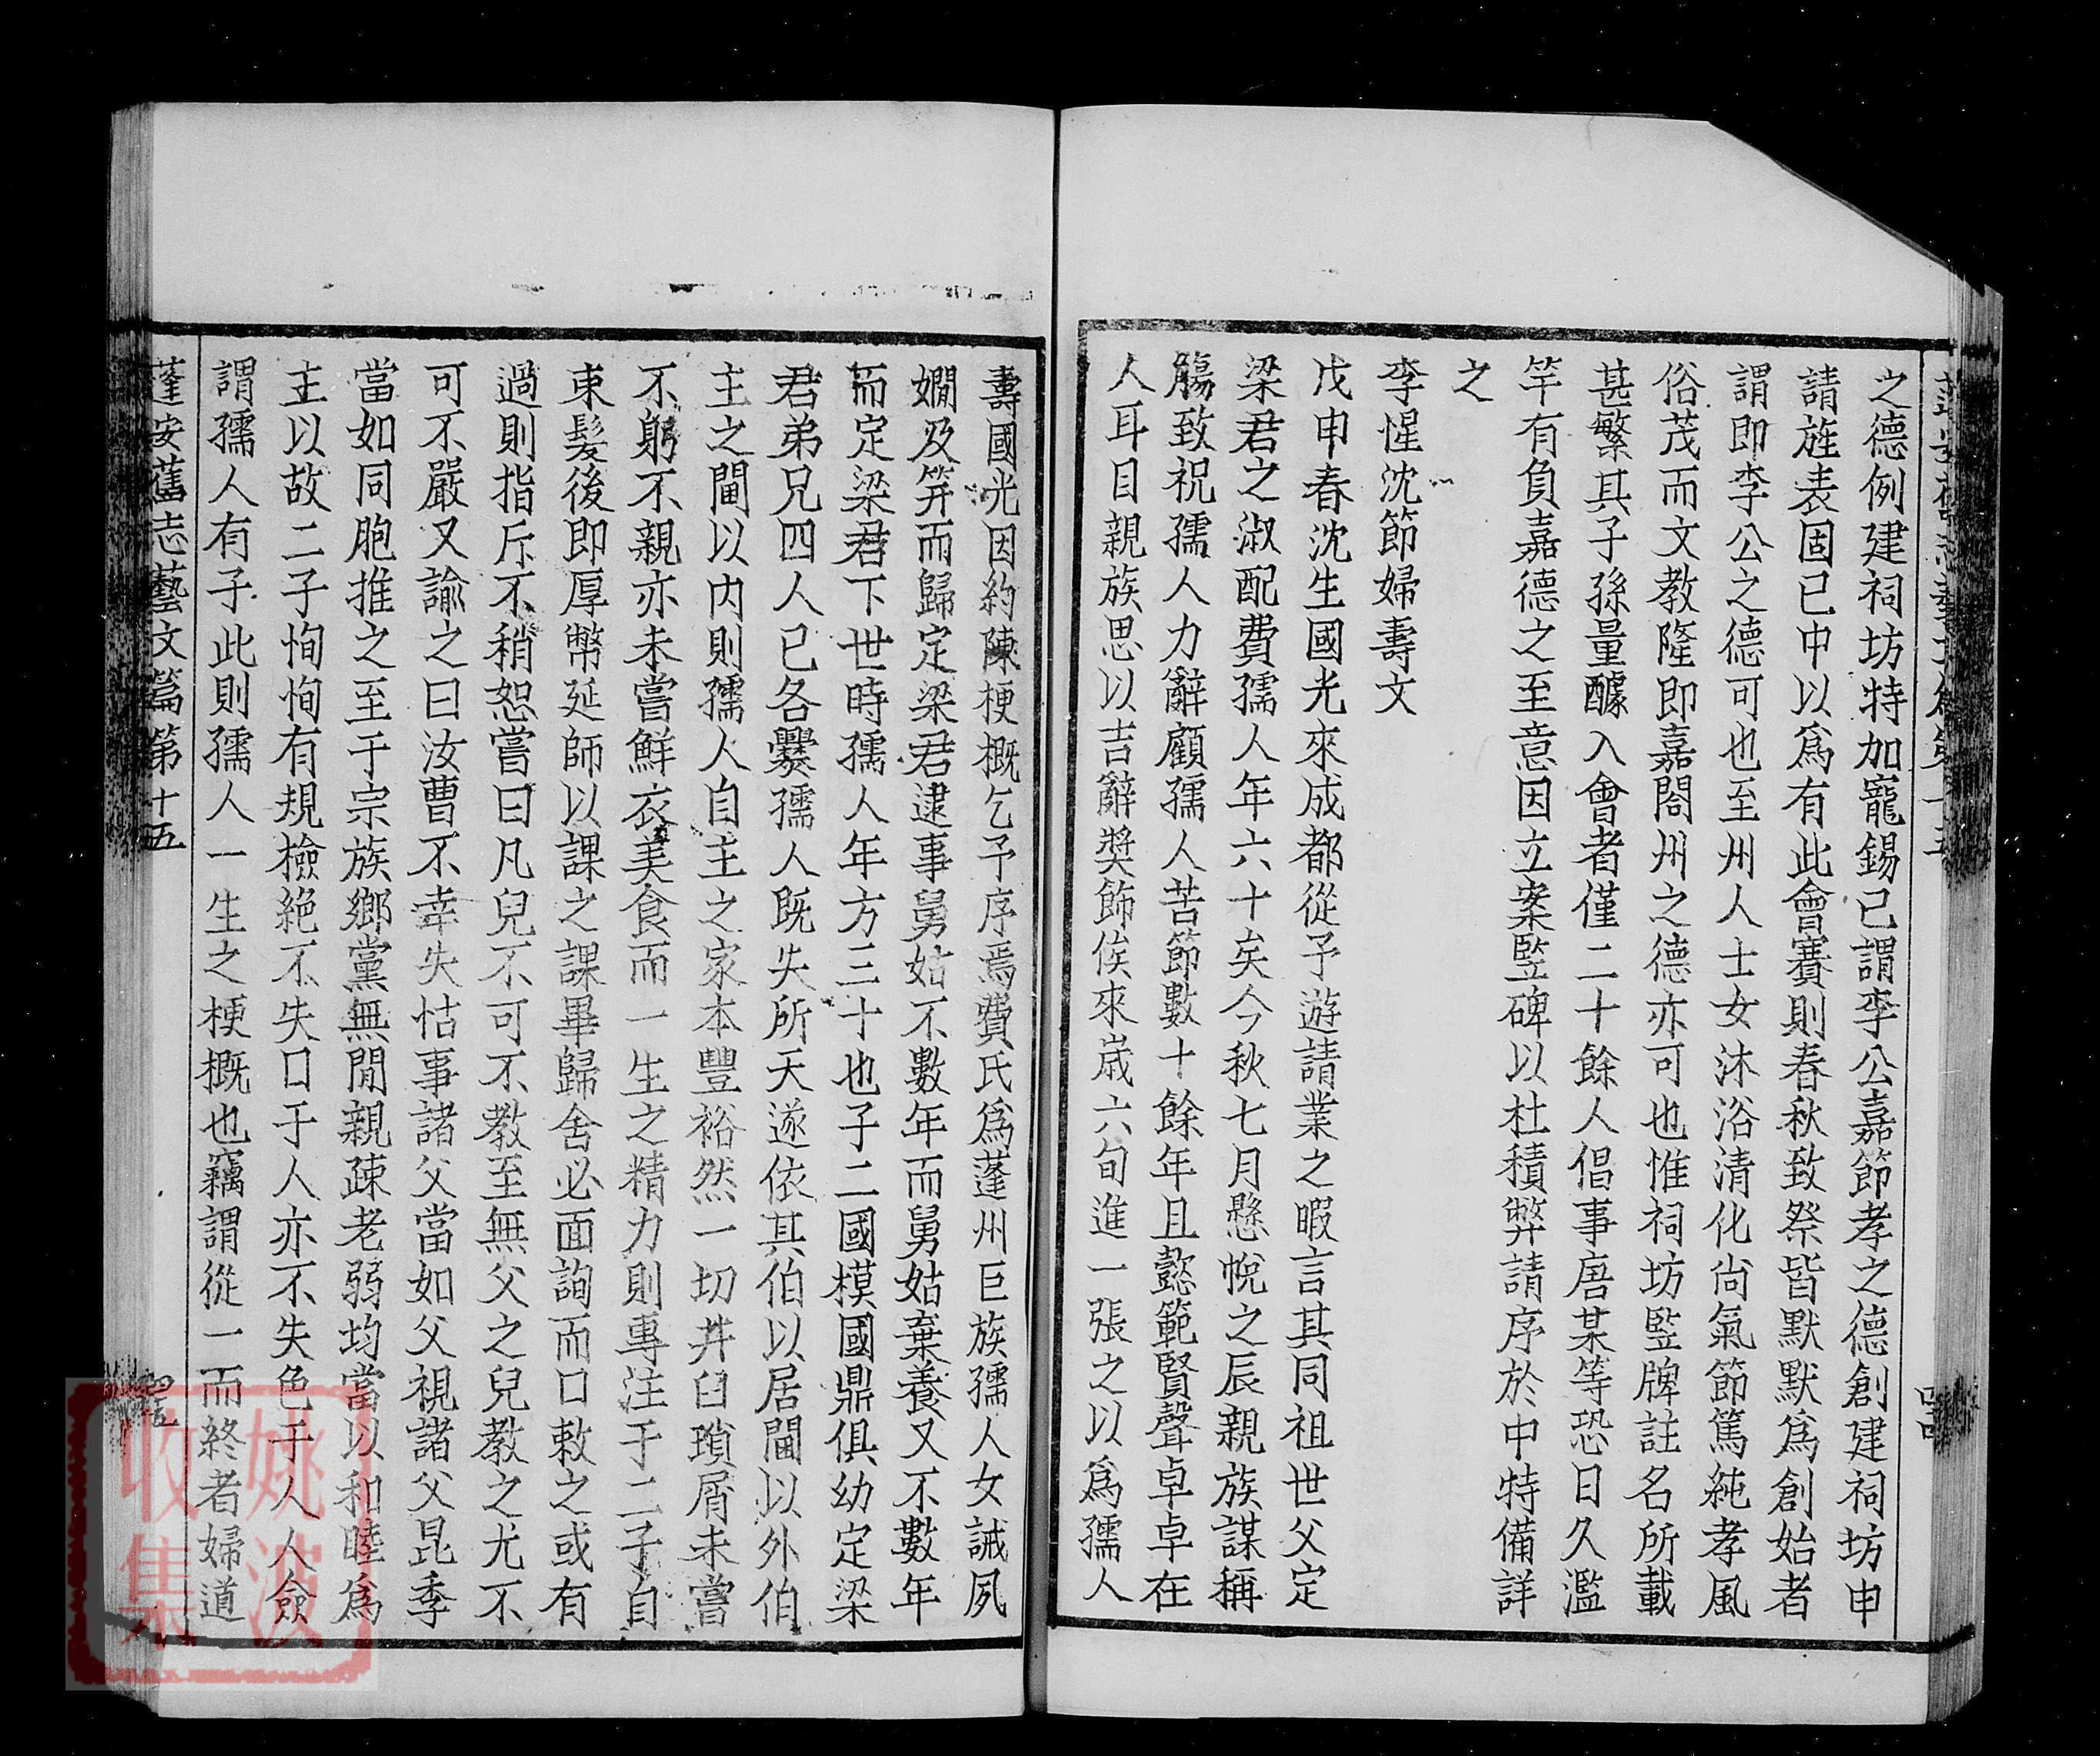 之德例建祠坊特加寵錫已謂李公嘉節孝之德創建祠坊申
請旌表固已中以爲有此會賽則春秋致祭皆默默爲創始者
謂即李公之德可也至州人士女沐浴清化尚氣節篤純孝風
俗茂而文教隆即嘉閤州之德亦可也惟祠坊監牌註名所載
甚繁其子孫量醵入會者僅二十餘人倡事唐某等恐日久濫
竽有負嘉德之至意因立案監碑以杜積弊請序於中特備詳
之
李惺沈節婦壽文
戊申春沈生國光來成都從予遊請業之暇言其同祖世父定
梁君之淑配費孺人年六十矣今秋七月懸帨之辰親族謀稱
觴致祝孺人力辭顧孺人苦節數十餘年且懿範賢聲卓卓在
人耳目親族思以吉辭獎飾俟來歲六旬進一張之以爲孺人
壽國光因約陳梗概乞予序焉費氏爲蓬州巨族孺人女誡夙
嫺及笄而歸定梁君逮事舅姑不數年而舅姑棄養又不數年
而定梁君下世時孺人年方三十也子二國模國鼎俱幼定梁
君弟兄四人已各爨孺人既失所天遂依其伯以居閫以外伯
主之閫以內則孺人自主之家本豐裕然一切井臼瑣屑未嘗
不躬不親亦未嘗鮮衣美食而一生之精力則專注于二子自
束髮後即厚幣延師以課之課畢歸舍必面詢而口敕之或有
過則指斥不稍恕嘗曰凡兒不可不教至無父之兒教之尤不
可不嚴又諭之曰汝曹不幸失怙事諸父當如父視諸父昆季
當如同胞推之至于宗族鄉黨無閒親疎老弱均當以和睦爲
主以故二子恂恂有規檢絕不失口于人亦不失色于人人僉
謂孺人有子此則孺人一生之梗概也竊謂從一而終者婦道
蓬安舊志藝文篇第十五
四五
姚波
收集